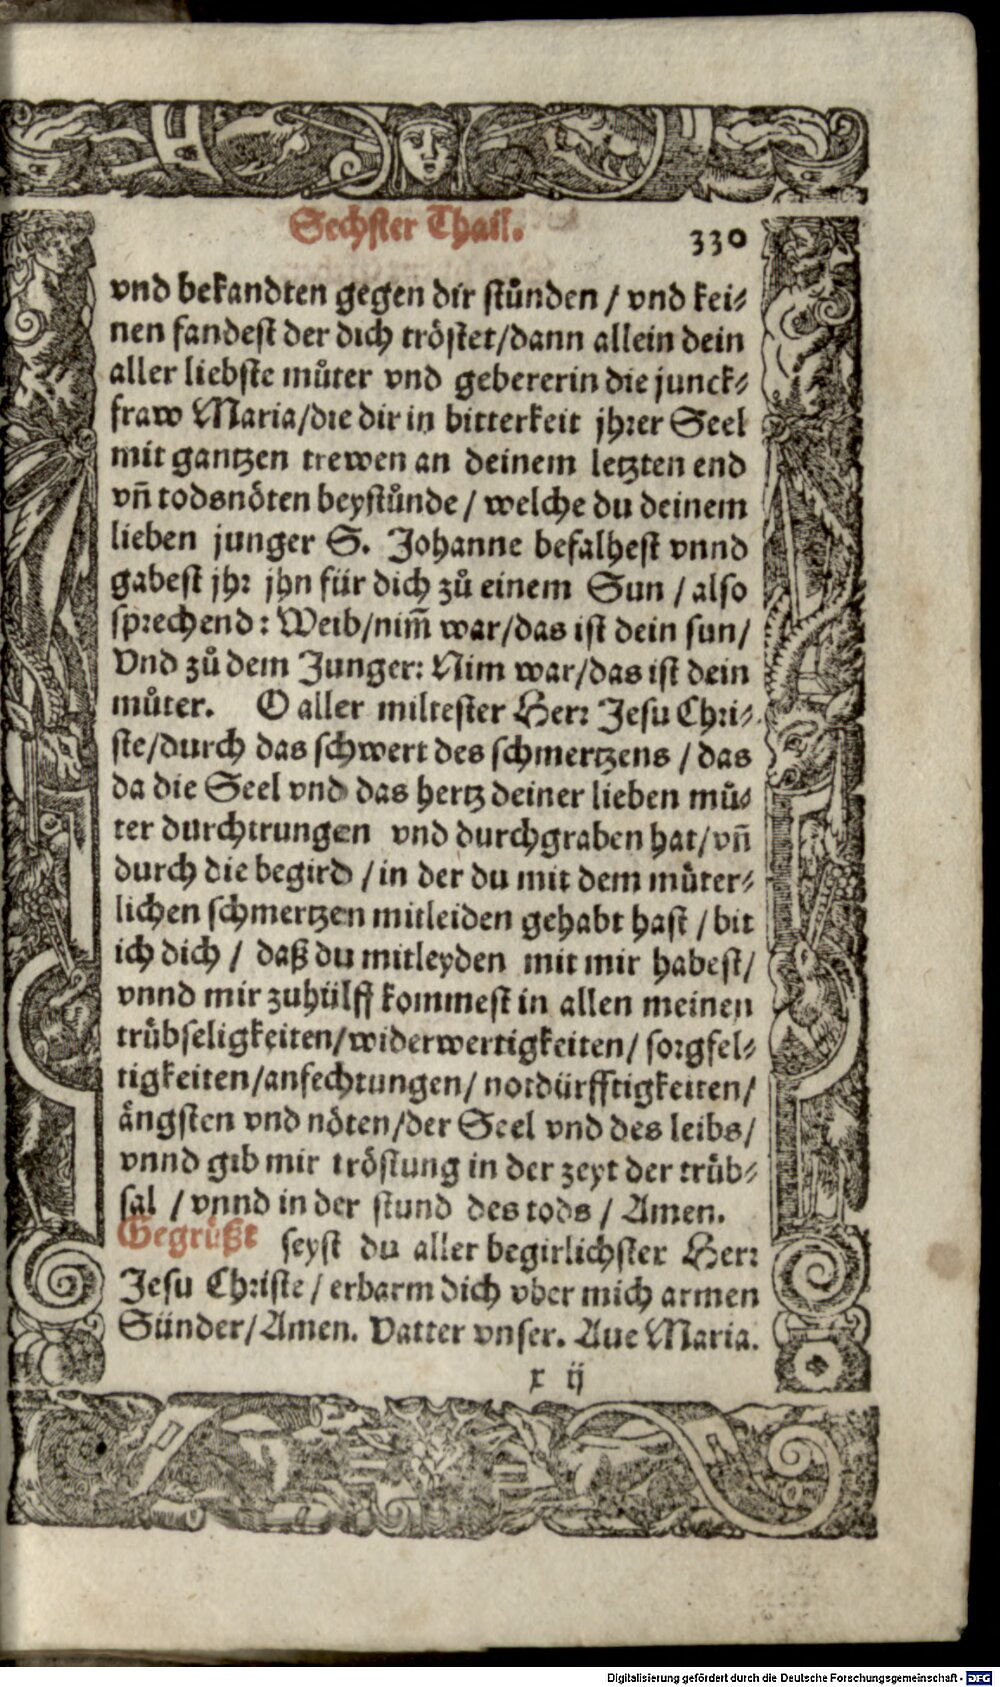 Sechster Thail.
330
vnd bekandten gegen dir stůnden / vnd kei⸗
nen fandest der dich tröstet/dann allein dein
aller liebste můter vnd gebererin die junck⸗
fraw Maria/die dir in bitterkeit jhrer Seel
mit gantzen trewen an deinem letzten end
vñ todsnöten beystůnde / welche du deinem
lieben junger S. Johanne befalhest vnnd
gabest jhr jhn für dich zů einem Sun / also
sprechend: Weib/nim̃ war/das ist dein sun/
Vnd zů dem Junger: Nim war/das ist dein
můter. O aller miltester Herr Jesu Chri⸗
ste/durch das schwert des schmertzens / das
da die Seel vnd das hertz deiner lieben můͦ⸗
ter durchtrungen vnd durchgraben hat/vñ
durch die begird / in der du mit dem můter⸗
lichen schmertzen mitleiden gehabt hast / bit
ich dich / daß du mitleyden mit mir habest/
vnnd mir zuhülff kommest in allen meinen
trübseligkeiten/widerwertigkeiten/ sorgfel⸗
tigkeiten/anfechtungen/ notdürfftigkeiten/
ängsten vnd nöten/der Seel vnd des leibs/
vnnd gib mir tröstung in der zeyt der trüb⸗
sal / vnnd in der stund des tods / Amen.
Gegrüßt seyst du aller begirlichster Herr
Jesu Christe / erbarm dich vber mich armen
Sünder/Amen. Vatter vnser. Aue Maria.
x ij
Digitalisierung gefördert durch die Deutsche Forschungsgemeinschaft - DFG